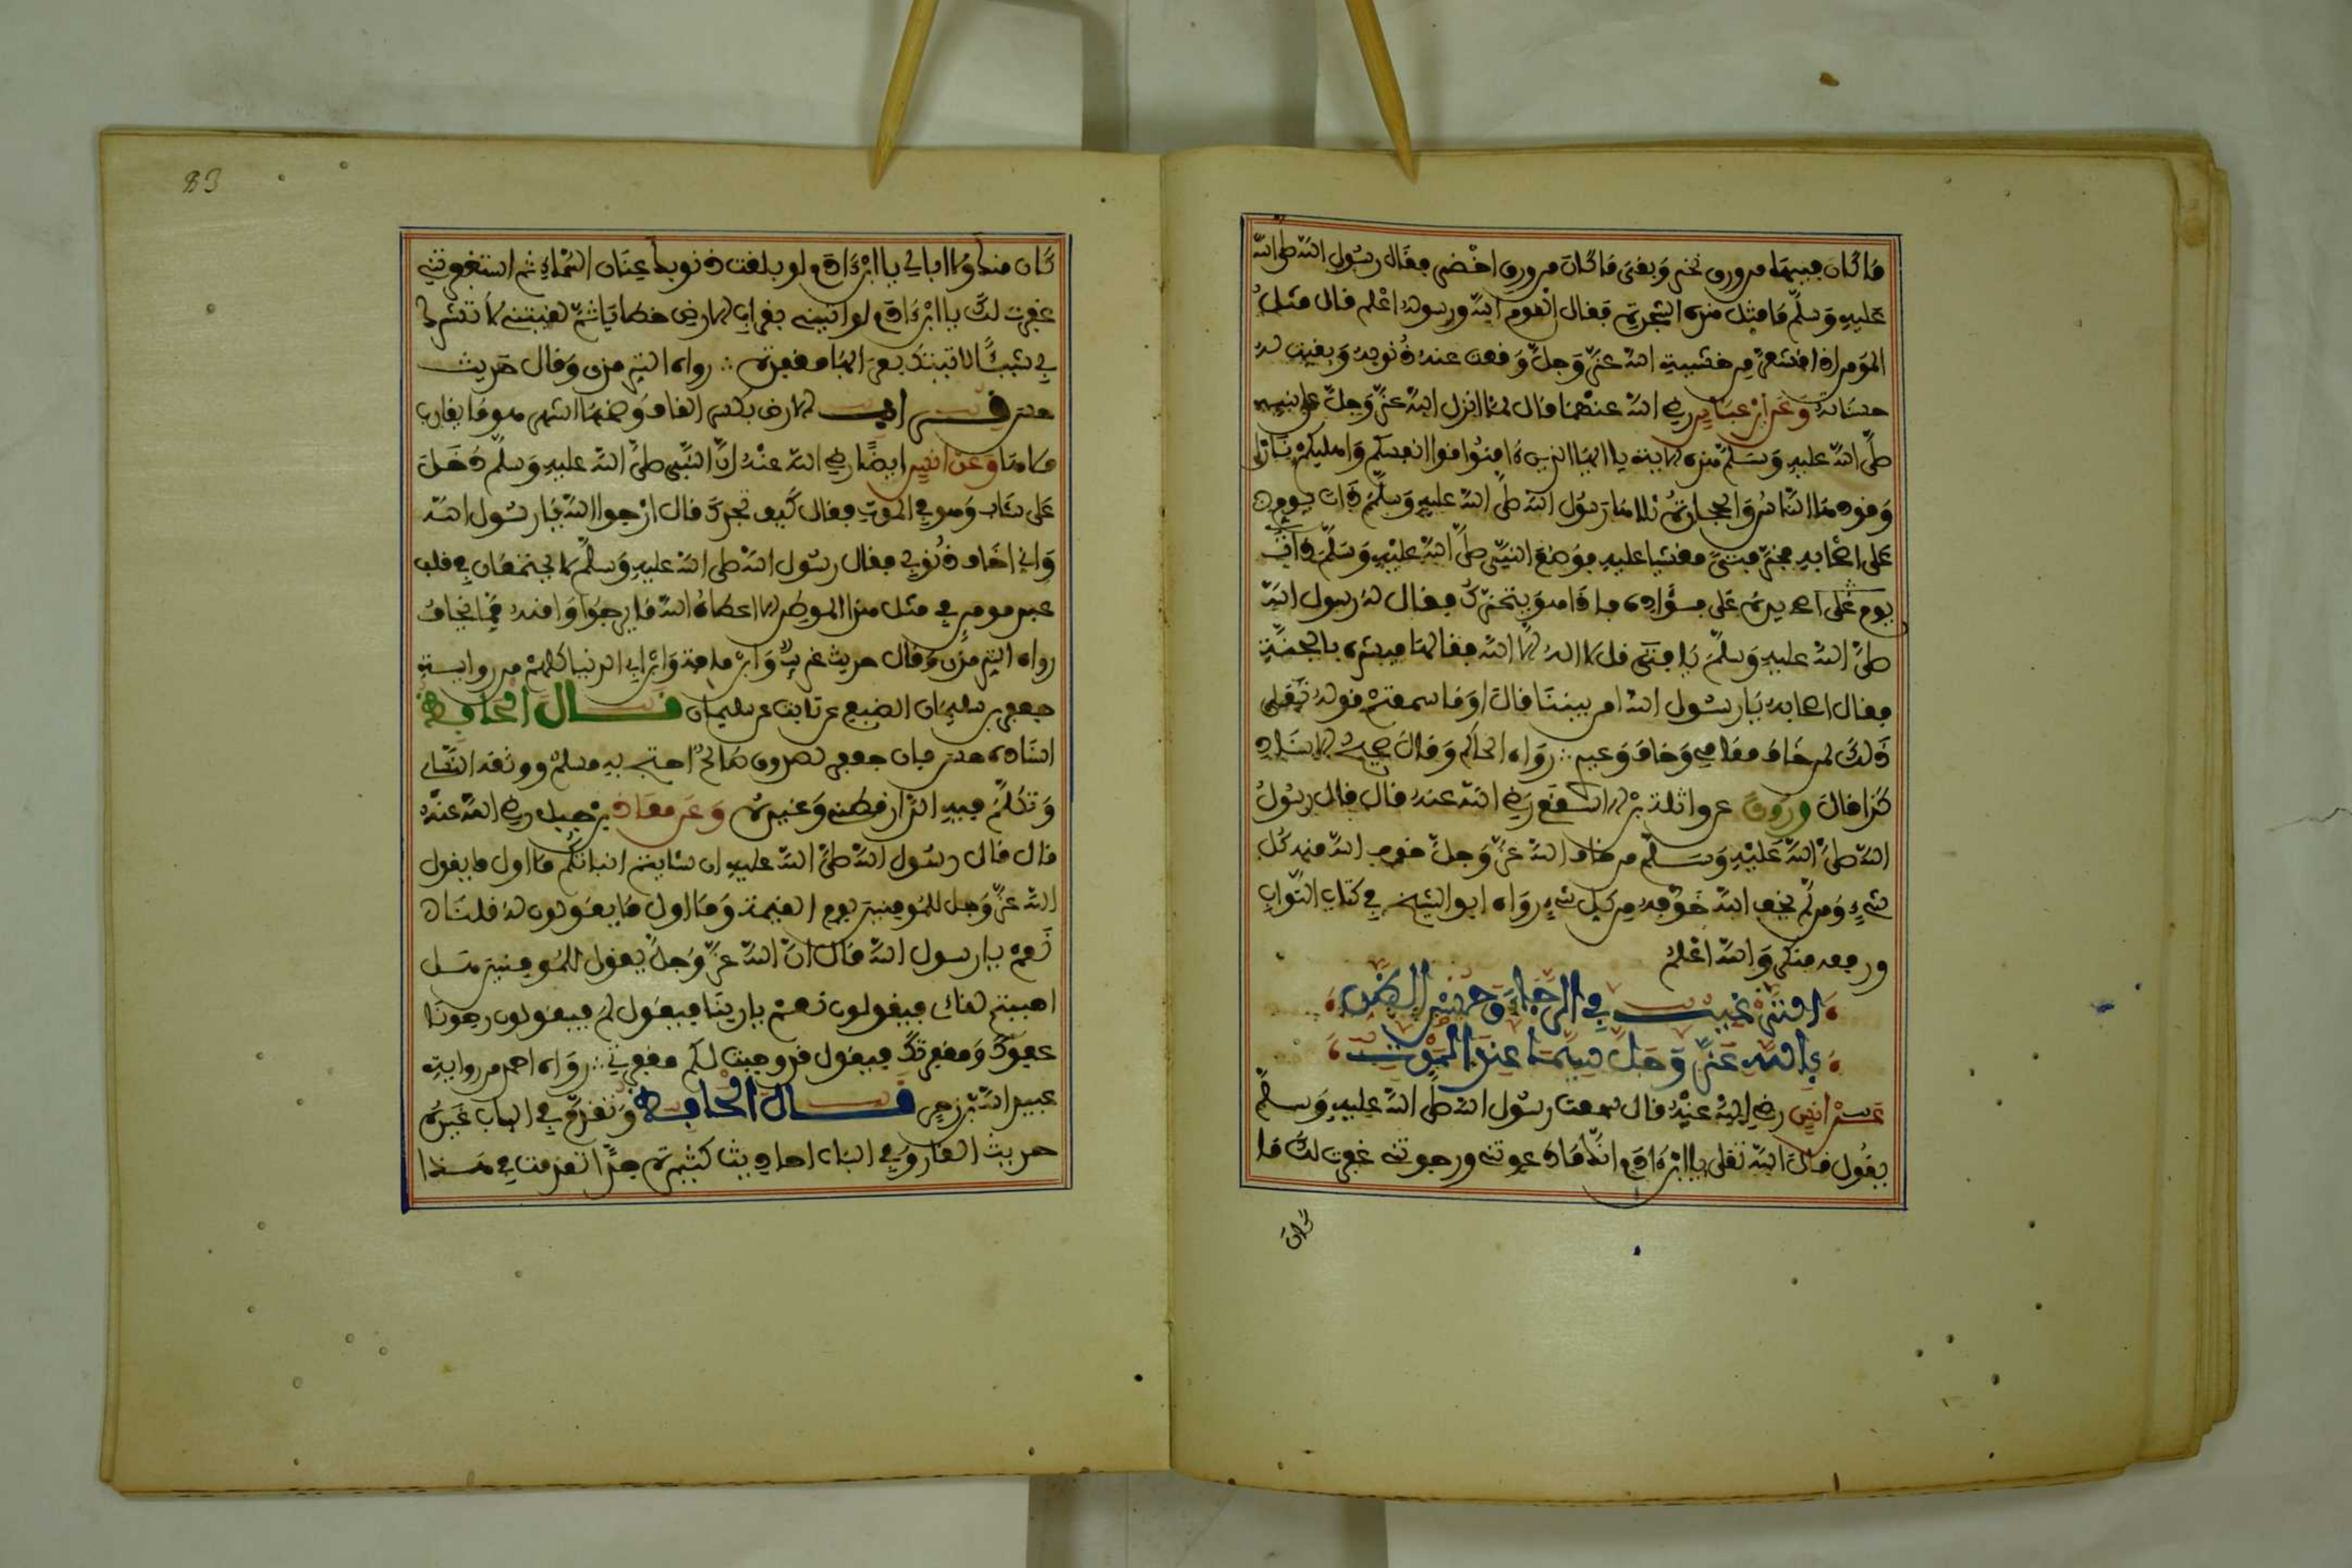 ما كان فيها من ورق نخر وبقي ما كان من ورق اخضر فقال رسول الله صلى الله
عليه وسلم ما مثل هذه الشجرة فقال القوم الله ورسوله اعلم قال مثل
المومن اذا اقشعر من خشية الله عز وجل وقعت عنه ذنوبه وبقيت له
حسناته وعن ابن عباس رضي الله عنهما قال لما انزل الله عز وجل على نبيه
صلى الله عليه وسلم هذه الاية يا ايها الذين ءامنوا قوا انفسكم واهليكم نارا
وقودها الناس والحجارة تلاها رسول الله صلى الله عليه وسلم ذات يوم
على اصحابه فخر فتى مغشيا عليه فوضع النبي صلى الله عليه وسلم
يده على فؤاده فاذا هو يتحرك فقال له رسول الله
صلى الله عليه وسلم يا فتى قل لا اله الا الله فقالها فبشره بالجنة
فقال اصحابه يا رسول الله امن بيننا قال اوما سمعتم قوله تعلى
ذلك لمن خاف مقامي وخاف وعيد ∴ رواه الحاكم وقال صحيح الاسناد
كذا قال وروي عن واثلة بن الاسقع رضي الله عنه قال قال رسول
الله صلى الله عليه وسلم من خاف الله عز وجل خوف الله منه كل
شيء ومن لم يخف الله خوفه من كل شيء رواه ابو الشيخ في كتاب الثواب
ورفعه منكر والله اعلم
الترغيب في الرجاء وحسن الظن
بالله عز وجل سيما عند الموت
عن انس رضي الله عنه قال سمعت رسول الله صلى الله عليه وسلم
يقول قال الله تعلى يا ابن ءادم انك ما دعوتني ورجوتني غفرت لك ما
كان
83
كان منك ولا ابالي يا ابن ءادم لو بلغت ذنوبك عنان السماء ثم استغفرتني
غفرت لك يا ابن ءادم لو اتيتني بقراب الارض خطايا ثم لقيتني لا تشرك
بي شيئا لاتيتك بقرابها مغفرة ∴ رواه الترمذي وقال حديث
حسن قراب الارض بكسر القاف وضمها اشهر هو ما يقارب
ملاها وعن انس ايضا رضي الله عنه ان النبي صلى الله عليه وسلم دخل
على شاب وهو في الموت فقال كيف تجدك قال ارجوا الله يا رسول الله
واني اخاف ذنوبي فقال رسول الله صلى الله عليه وسلم لا يجتمعان في قلب
عبد مومن في مثل هذا الموطن الا اعطاه الله ما يرجوا وامنه مما يخاف
رواه الترمذي وقال حديث غريب وابن ماجة وابن ابي الدنيا كلهم من رواية
جعفر بن سليمان الضبعي عن ثابت عن سليمان قال الحافظ
اسناده حسن فان جعفر صدوق صالح احتج به مسلم ووثقه النساي
وتكلم فيه الدارقطني وغيره وعن معاذ بن جبل رضي الله عنه
قال قال رسول الله صلى الله عليه ان شايتم انباتكم ما اول ما يقول
الله عز وجل للمومنين يوم القيمة وما اول ما يقولون له قلنا
نعم يا رسول الله قال ان الله عز وجل يقول للمومنين هل
احببتم لقائي فيقولون نعم يا ربنا فيقول لم فيقولون رجونا
عفوك ومغفرتك فيقول قد وجبت لكم مغفرتي ∴ رواه احمد من رواية
عبيد الله بن زحر قال الحافظ وتقدم في الباب غيره
حديث الغار وفي الباب احاديث كثيرة جدا تقدمت في هذا